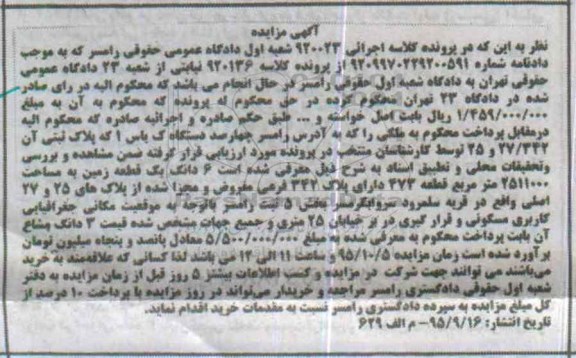 آگهی مزایده
نظر به این که در پرونده کلاسه اجرائی ۹۲۰۰۲۳ شعبه اول دادگاه عمومی حقوقی رامسر که به موجب
دادنامه شماره ۹۲۰۹۹۷۰۲۲۹۲۰۰۵۹۱ از پرونده کلاسه ۹۲۰۱۳۶ نیابتی از شعبه ۲۳ دادگاه عمومی
حقوقی تهران به دادگاه شعبه اول حقوقی رامسر در حال انجام می باشد که محکوم الیه در رای صادر
شده در دادگاه ۲۳ تهران محکوم گرده در حق محکوم له پرونده که محکوم به آن به مبلغ
۱/۴۵۹/۰۰۰/۰۰۰ ریال بابت اصل خواسته و ... طبق حکم صادره و اجرائیه صادره که محکوم الیه
درمقابل پرداخت محکوم به ملکی را که به آدرس رامسر چهارصد دستگاه ک یاس ۱ که پلاک ثبتی آن
۲۷/۳۴۲ و ۲۵ توسط کارشناسان منتخب در پرونده مورد ارزیابی قرار گرفته ضمن مشاهده و بررسی
وتحقیقات محلی و تطبیق اسناد به شرح ذیل معرفی شده است ۶ دانگ یک قطعه زمین به مساحت
۲۵۱۱۰۰۰ متر مربع قطعه ۳۷۳ دارای پلاک ۳۴۲ فرعی مفروض و مجزا شده از پلاک های ۲۵ و ۲۷
اصلی واقع در قریه سلمرود سروابگرامسر بخش ۵ ثبت رامسر باتوجه به موقعیت مکانی جغرافیایی
کاربری مسکونی و قرار گیری در بر خیابان ۲۵ متری و جمیع جهات مشخص شده قیمت ۳ دانگ مشاع
آن بابت پرداخت محکوم به معرفی شده به مبلغ ۵/۵۰۰/۰۰۰/۰۰۰ معادل پانصد و پنجاه میلیون تومان
برآورد شده است زمان مزایده ۹۵/۱۰/۵ و ساعت ۱۱ الی ۱۲ می باشد لذا کسانی که علاقه‌مند به خرید
میباشند می توانند جهت شرکت در مزایده و کسب اطلاعات بیشتر ۵ روز قبل از زمان مزایده به دفتر
شعبه اول حقوقی دادگستری رامسر مراجعه و خریدار می‌تواند در روز مزایده با پرداخت ۱۰ درصد از
کل مبلغ مزایده به سپرده دادگستری رامسر نسبت به مقدمات خرید اقدام نماید.
تاریخ انتشار: ۹۵/۹/۱۶- م الف ۶۲۹